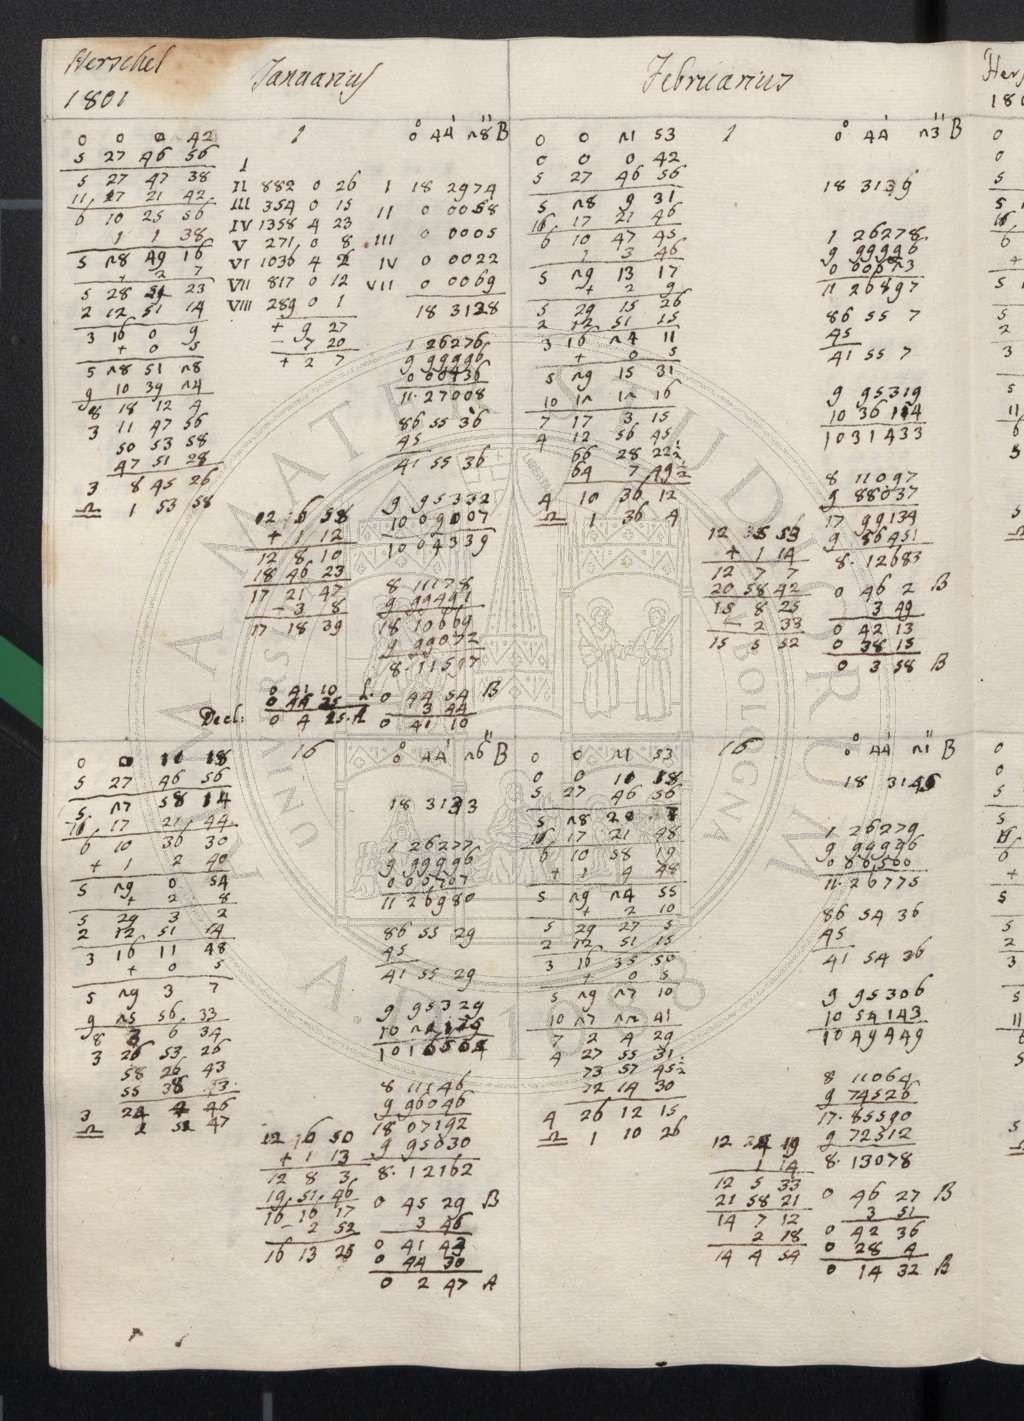 Herschel
1801
Januarius
0 0 0 42
5 27 46 56
5 27 47 38
11 27 21 42
6 10 25 56
1 1 38
5 28 49 16
+ 2 7
5 28 51 23
2 12 51 14
3 16 0 9
+ 0 5
5 28 51 28
9 10 39 24
8 18 12 4
3 11 47 56
50 53 58
47 51 28
3 8 45 26
♎ 1 53 58
1
I
II 882 0 26
III 354 0 15
IV 1358 4 23
V 271,0 8
VI 1036 4 26
VII 817 0 12
VIII 289 0 1
+ 9 27
- 7 20
+ 2 7
12 16 58
+ 1 12
12 8 10
18 46 23
17 21 47
- 3 8
17 18 39
0 41 10
0 44 35
Decl: 0 4 25. A
0° 44' 28'' B
I 18 2974
II 0 0058
III 0 0005
IV 0 0022
VII 0 0069
18 3128
1 26276
9 99996
0 00736
11. 27008
86 55 36
45
41 55 36
9 95332
10 09007
10 04339
8 11178
9 99491
18 10669
9 99072
8. 11597
0 44 54 B
3 44
0 41 10
Februarius
0 0 21 53
0 0 0 42
5 27 46 56
5 28 9 31
16 17 21 46
6 10 47 45
1 3 46
5 29 13 17
+ 2 9
5 29 15 26
2 12 51 15
3 16 24 11
+ 0 5
5 29 15 31
7 17 3 15
4 12 56 45
66 28 22½
64 7 49½
4 10 36 12
♎ 1 36 4
1
12 35 53
+ 1 14
12 7 7
20 58 42
15 8 25
- 2 33
15 5 52
0° 44' 23'' B
18 3139
1 26278
9 99996
0 00623
11 26897
86 55 7
45
41 55 7
9 95319
10 36114
1031433
8 11097
9 88037
17 99134
9 86451
8. 12683
0 46 2 B
3 49
0 42 13
0 38 15
0 3 58 B
0 0 10 18
5 27 46 56
5 27 58 14
16 17 21 44
6 10 36 30
+ 1 2 40
5 29 0 54
+ 2 8
5 29 3 2
2 12 51 14
3 16 11 48
+ 0 5
5 29 3 7
9 25 56 33
8 3 6 34
3 26 53 26
58 26 43
55 38 3
3 24 4 46
♎ 2 51 47
16
12 16 50
+ 1 13
12 8 3
19,51,46
16 16 17
- 2 52
16 13 25
0° 44' 26'' B
18 3133
1 26277
9 99996
0 00707
11 26980
86 55 29
45
41 55 29
9 95329
8 11146
9 96046
18 07192
9 95030
8. 12162
0 45 29 B
3 46
0 41 43
0 44 30
0 2 47 A
0 0 21 53
0 0 10 18
5 27 46 56
16 17 21 48
6 10 58 19
+ 1 4 48
5 29 24 55
+ 2 10
5 29 27 5
2 12 51 15
3 16 35 50
+ 0 5
5 29 27 10
10 27 22 41
7 2 4 29
4 27 55 31
73 57 45½
72 14 30
4 26 12 15
♎ 1 10 26
16
12 24 19
1 14
12 5 33
21 58 21
14 7 12
2 18
14 4 54
0° 44' 21'' B
18 3146
1 26279
9 99996
0 00500
11. 26775
86 54 36
45
41 54 36
9 95306
10 54143
10 49449
8 11064
9 74526
17. 85590
9 72512
8. 13078
0 46 27 B
3 51
0 42 36
0 28 4
0 14 32 B